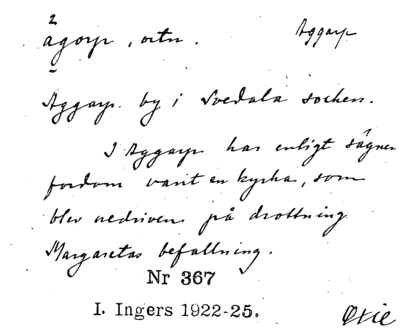 2
agorp, ortn.
Aggarp
Aggarp. by i Svedala socken.
I Aggarp har enligt sägnen
fordom varit en kyrka, som
blev nedriven på drottning
Margaretas befallning.
Nr 367
I. Ingers 1922-25.
Oxie